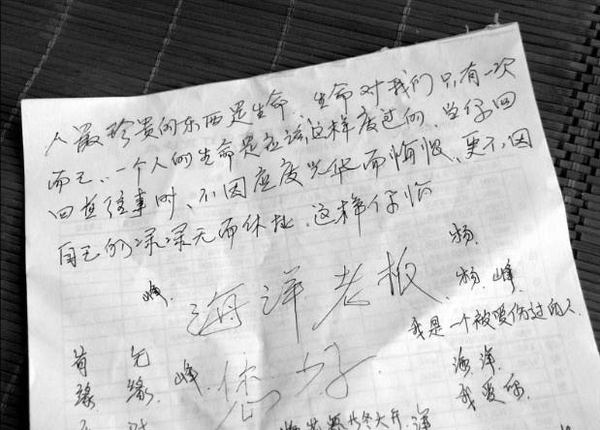 人最珍贵的东西是生命、生命对我们只有一次
而已、一个人的生命是应该这样度过的、当你回
回首往事时、不因虚度光华而悔恨、更不因
自己的碌碌无而休耻、这样你临
杨
峰、
海洋老板
杨 峰
我是一个被爱伤过的人
有 无
缘 缘 峰
您好
海洋
我爱你